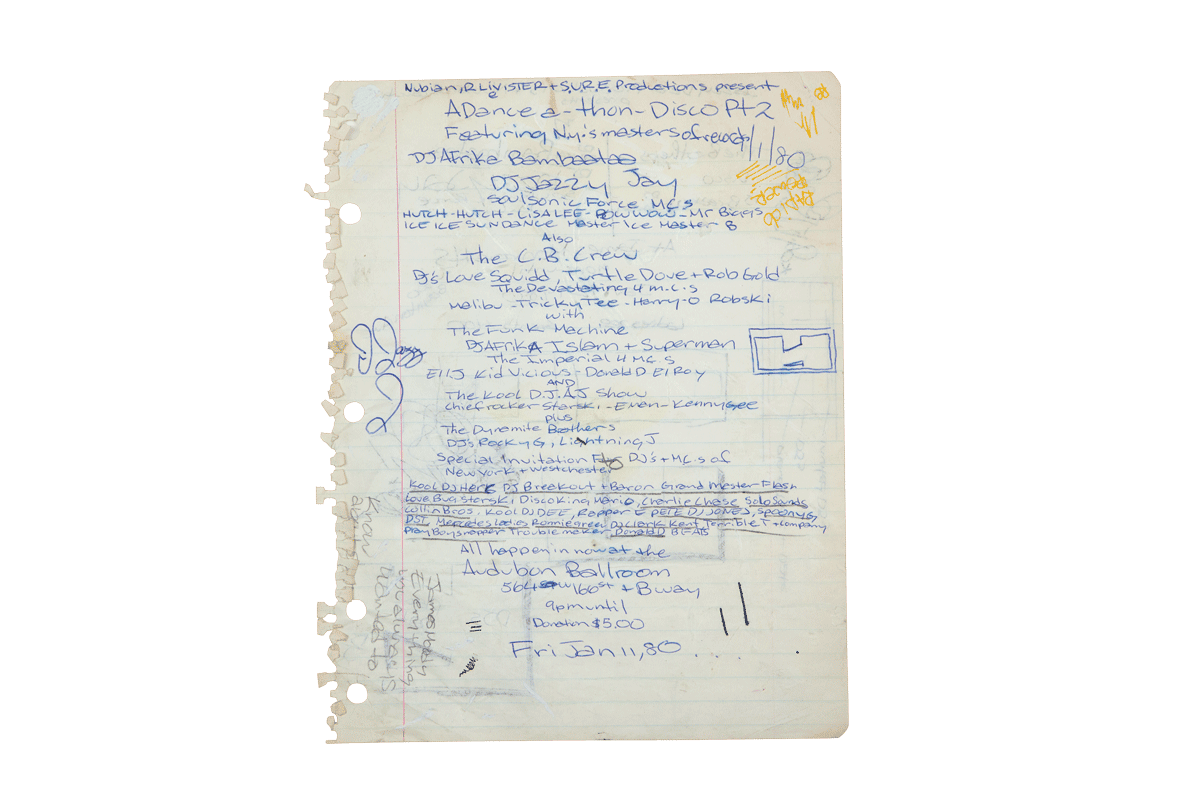 Nubian, R. Livister + S.U.R.E. Productions present
A Dance a-thon-Disco Pt 2
Featuring N.y.'s masters of record
1/11/80
DJ Afrika Bambaataa
DJ Jazzy Jay
Soulsonic Force M.C.s
HUTCH-HUTCH-LISA LEE-POW WOW-Mr Biggs
ICE ICE SUNDANCE Master Ice Master B
Also
The C.B. Crew
DJ's Love Squidd, Turtle Dove + Rob Gold
The Devastating 4 m.c.s
Malibu-Tricky Tee-Harry-O Robski
with
The Funk Machine
DJ AFrikA Islam + Superman
The Imperial 4 M.C.s
Ell J Kid Vicious-Donald D El Roy
AND
The Kool D.J. AJ Show
Chief rocker Starski-Eman-Kenny Gee
plus
The Dynomite Brothers
DJ's Rocky G, Lightning J
Special Invitation DJ's + M.C.s of
New York + Westchester
Kool DJ Herc DJ Breakout + Baron Grand Master Flash
Love Bug Starski Disco King Mario, Charlie Chase Solo Sounds
Collin Bros, KOOL DJ DEE, Rapper E PETE DJ JONES, Spoony G,
DST, Mercedes Ladies Ronnie green DJ Clark Kent Terrible T + company
Play Boys Trouble maker Donald D B-FAB
All happenin now at the
Audubon Ballroom
564 W 166st + Bway
9pm until
Donation $5.00
Fri Jan 11, 80
Jazzy
Know
Wanted to
Everything